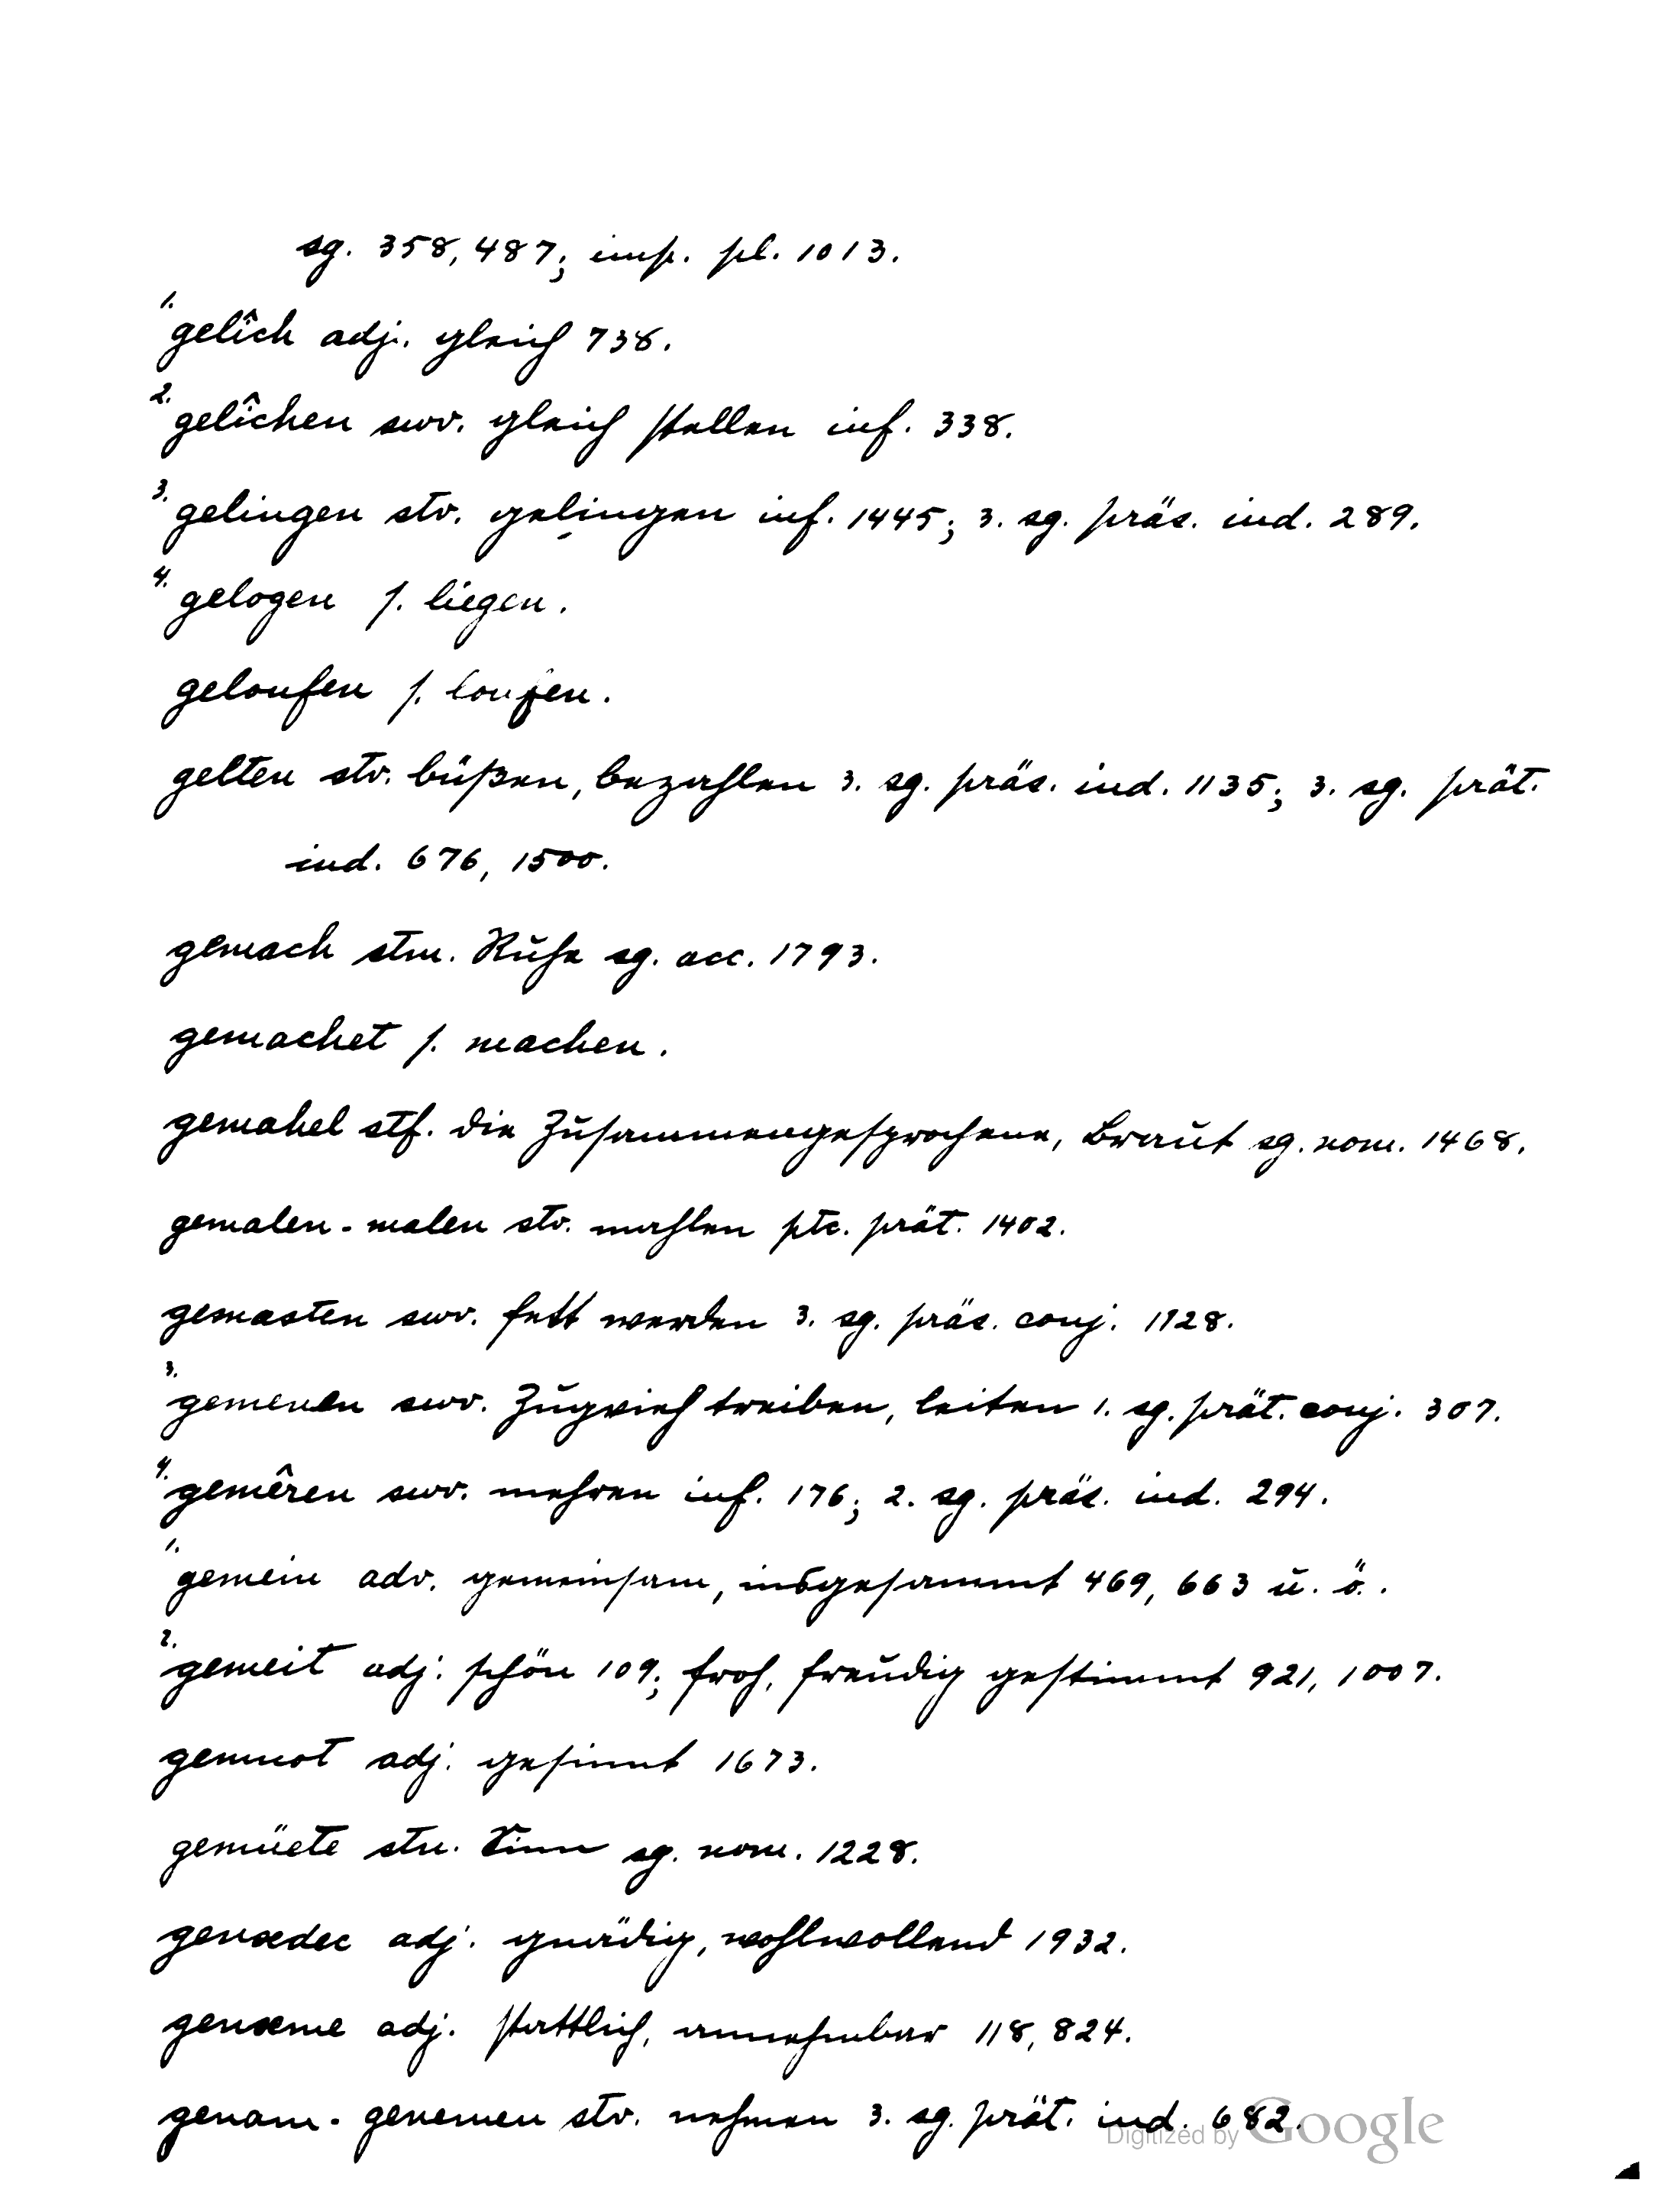 sg. 358, 487; imp. pl. 1013.
1. gelîch adj. gleich 738.
2. gelîchen swv. gleich stellen inf. 338.
3. gelingen stv. gelingen inf. 1445; 3. sg. präs. ind. 289.
4. gelogen s. liegen.
geloufen s. loufen.
gelten stv. büßen, bezahlen 3. sg. präs. ind. 1135; 3. sg. prät.
ind. 676, 1500.
gemach stm. Ruhe sg. acc. 1793.
gemachet s. machen.
gemahel stf. die Zusammengesprochene, Braut sg. nom. 1468.
gemalen - malen stv. mahlen ptc. prät. 1402.
gemasten swv. fett werden 3. sg. präs. conj. 1128.
3. gemenen swv. Zugvieh treiben, leiten 1. sg. prät. conj. 307.
4. gemêren swv. mehren inf. 176; 2. sg. präs. ind. 294.
1. gemein adv. gemeinsam, insgesammt 469, 663 u. ö..
2. gemeit adj. schön 109; froh, freudig gestimmt 921, 1007.
gemuot adj. gesinnt 1673.
gemüete stn. Sinn sg. nom. 1228.
genædec adj. gnädig, wohlwollend 1932.
genæme adj. stattlich, annehmbar 118, 824.
genam - genemen stv. nehmen 3. sg. prät. ind. 682.
Digitized by Google